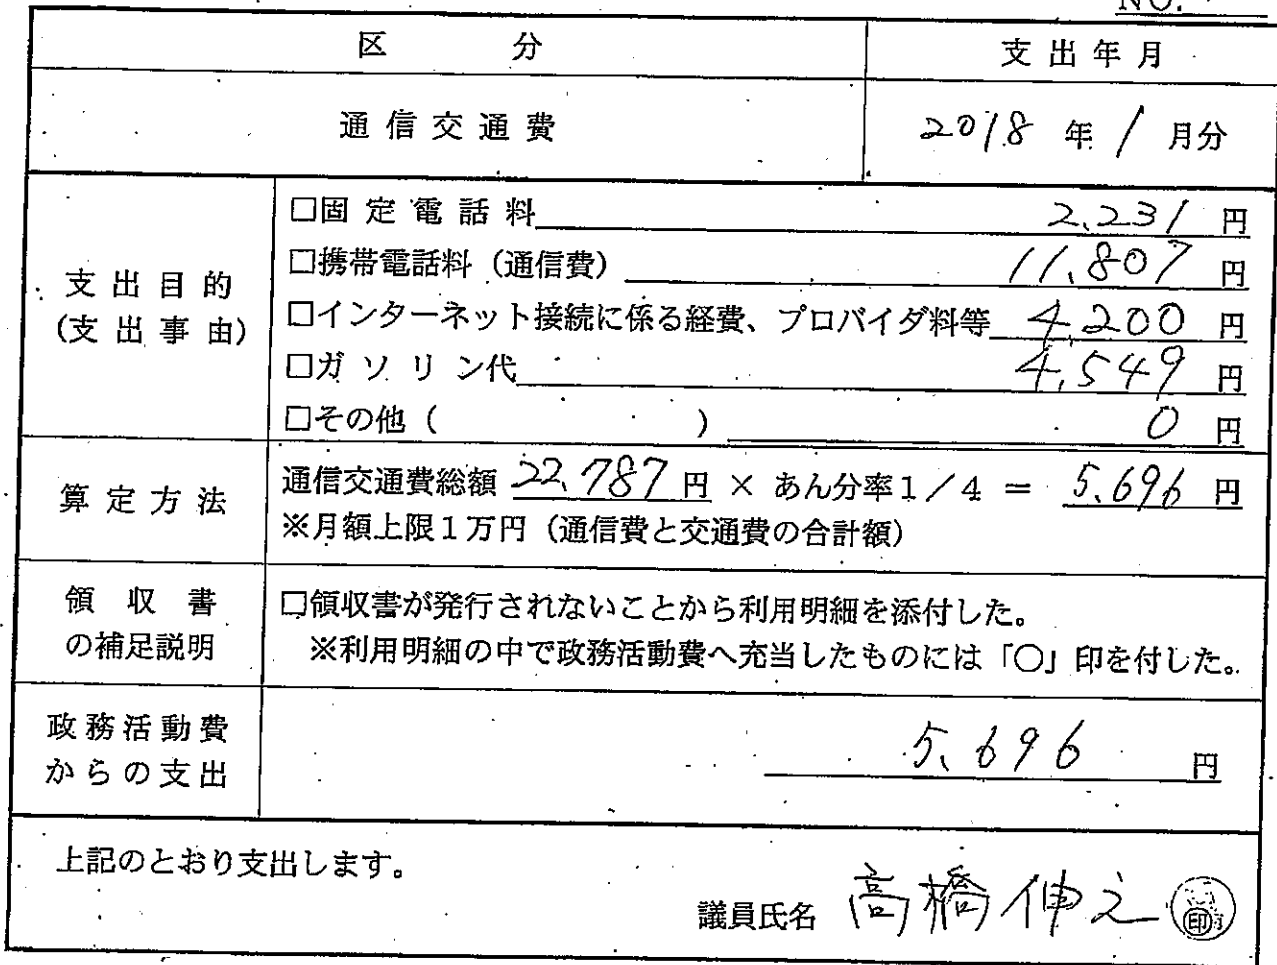 NO.
区 分 支出年月
通信交通費 2018 年 1 月分
支出目的
(支出事由)
□固定電話料 2,231 円
□携帯電話料(通信費) 11,807 円
□インターネット接続に係る経費、プロバイダ料等 4,200 円
□ガソリン代 4,549 円
□その他( ) 0 円
算定方法
通信交通費総額 22,787 円 × あん分率1/4 = 5,696 円
※月額上限1万円(通信費と交通費の合計額)
領収書
の補足説明
□領収書が発行されないことから利用明細を添付した。
※利用明細の中で政務活動費へ充当したものには「○」印を付した。
政務活動費
からの支出
5,696 円
上記のとおり支出します。
議員氏名 高橋伸之 印